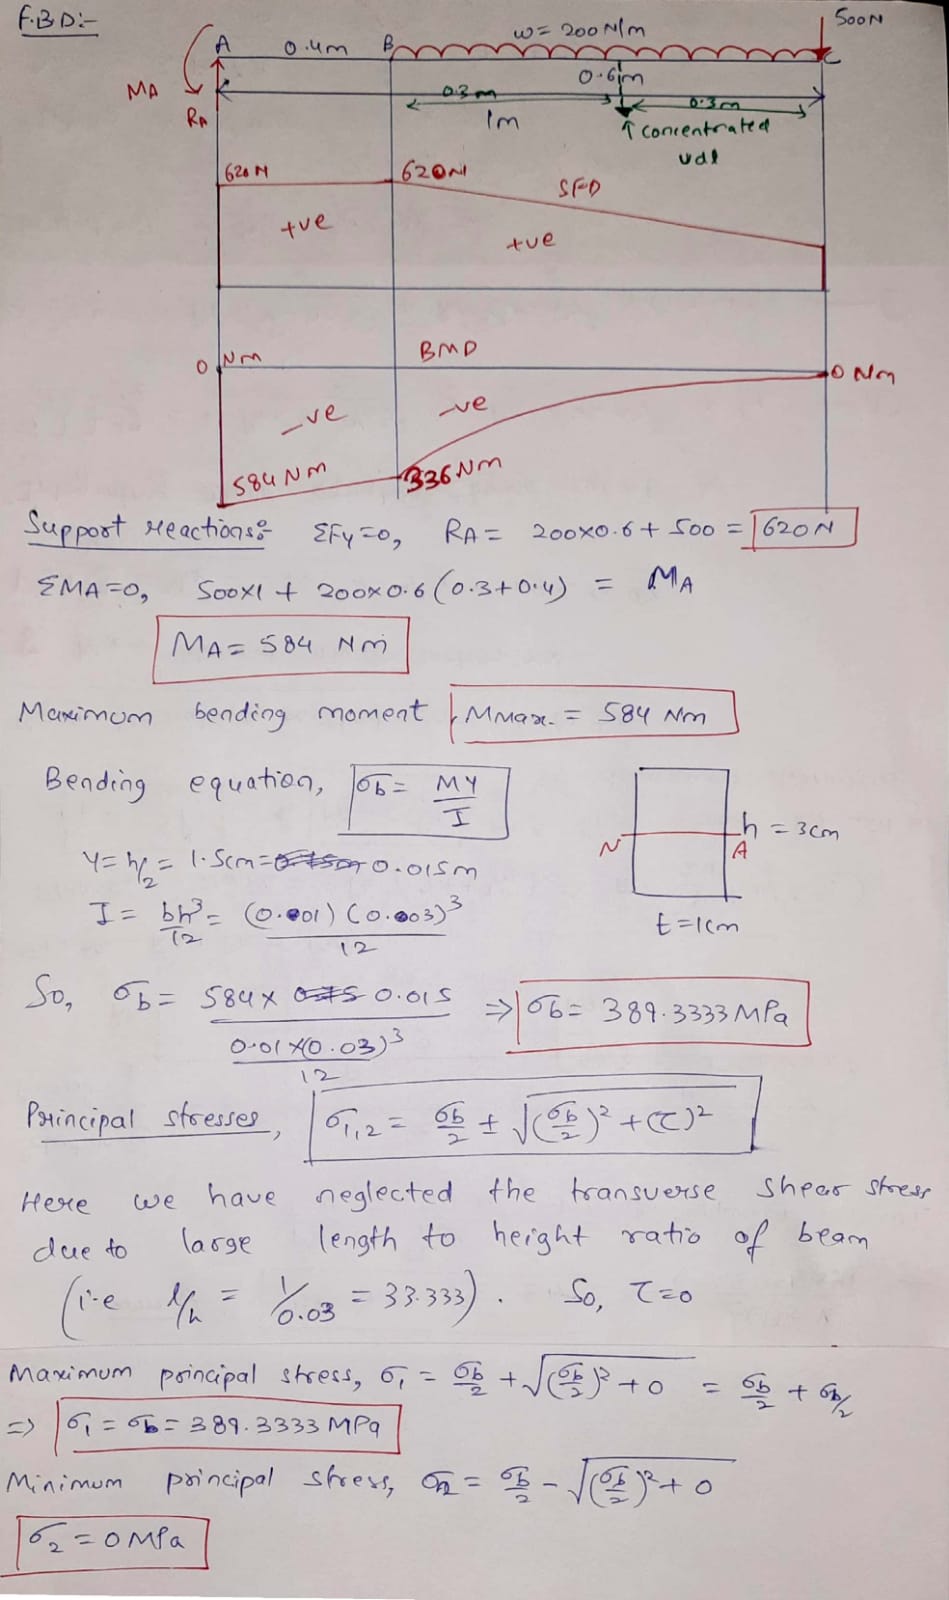 F.B.D:-
500N
w= 200N/m
A 0.4m B C
0.6m
MA
RA
0.3m 0.3m
1m
↑ concentrated
udl
620N 620N
SFD
+ve
+ve
0 Nm BMD 0 Nm
-ve -ve
584 Nm 336 Nm
Support reactions: ΣFy=0, RA= 200x0.6+ 500 = 620N
ΣMA=0, 500x1 + 200x0.6(0.3+0.4) = MA
MA= 584 Nm
Maximum bending moment, Mmax. = 584 Nm
Bending equation, σb= MY/I
N A h = 3cm
Y= h/2 = 1.5cm= 0.015m
I= bh³/12 = (0.001)(0.003)³/12
t=1cm
So, σb= 584x 0.015 / (0.01x(0.03)³/12) ⇒ σb= 389.3333MPa
Principal stresses, σ1,2= σb/2 ± √(σb/2)²+(τ)²
Here we have neglected the transverse shear stress
due to large length to height ratio of beam
(i.e l/h = 1/0.03 = 33.333). So, τ=0
Maximum principal stress, σ1 = σb/2 + √(σb/2)²+0 = σb/2 + σb/2
=> σ1 = σb= 389.3333 MPa
Minimum principal stress, σ2 = σb/2 - √(σb/2)²+0
σ2 = 0MPa